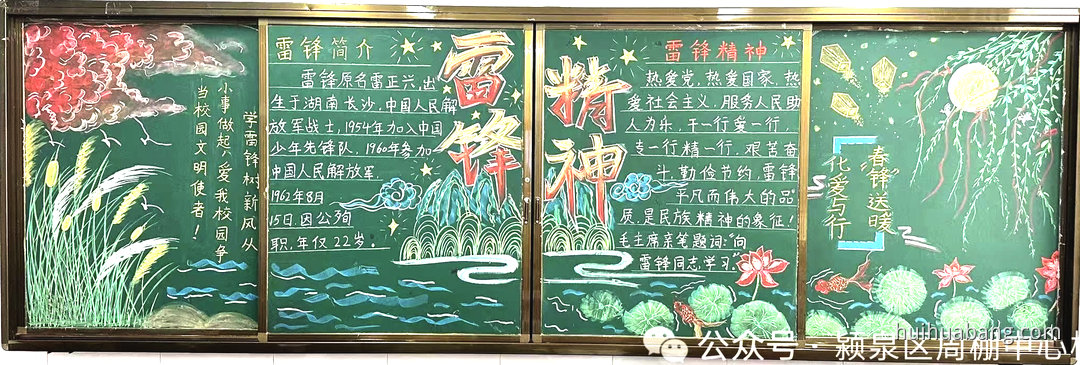 学雷锋树新风从
小事做起,爱我校园争
当校园文明使者!
雷锋简介
雷锋原名雷正兴,出
生于湖南长沙,中国人民解
放军战士,1954年加入中国
少年先锋队,1960年参加
中国人民解放军
1962年8月
15日因公殉
职,年仅22岁。
雷锋
精神
雷锋精神
热爱党,热爱国家,热
爱社会主义,服务人民助
人为乐,干一行爱一行,
专一行精一行,艰苦奋
斗,勤俭节约,雷锋
平凡而伟大的品
质,是民族精神的象征!
毛主席亲笔题词:"向
雷锋同志学习"
"春'锋'送暖
化爱与行
huihuabang.com
公众号·颍泉区周棚中心校